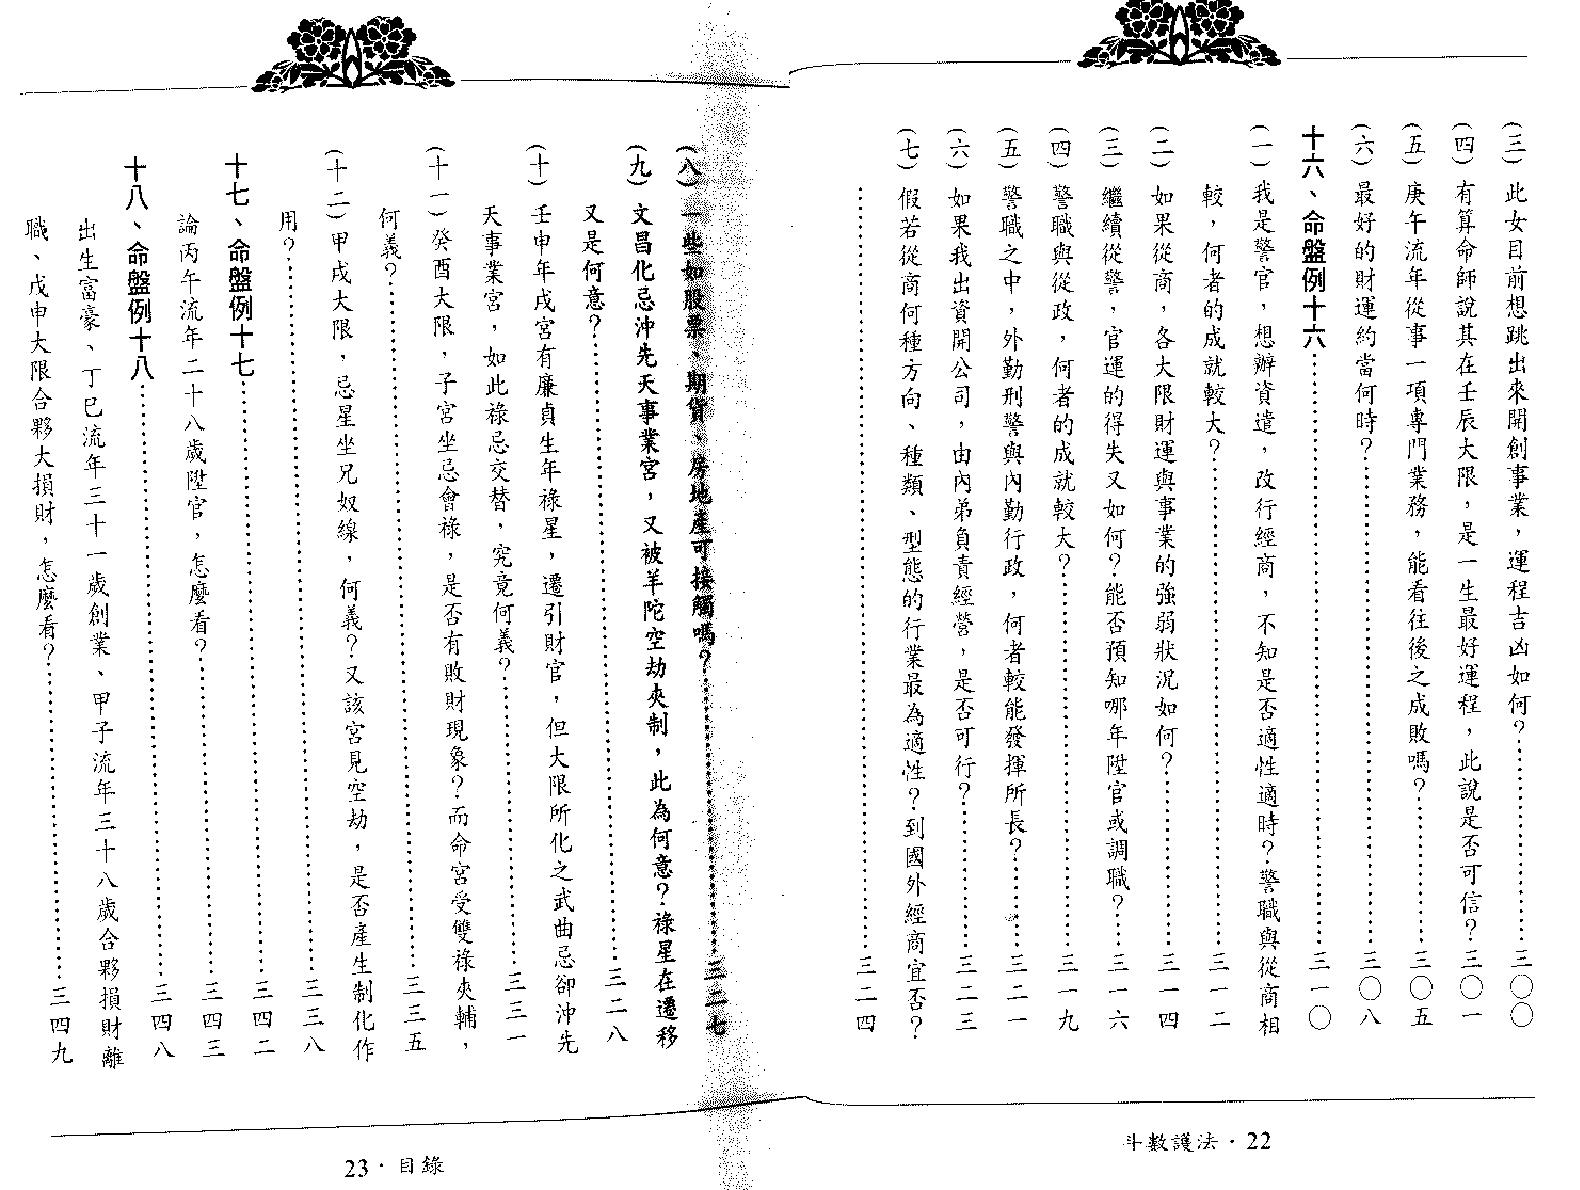 (三) 此女目前想跳出來開創事業，運程吉凶如何？……三〇〇
(四) 有算命師說其在壬辰大限，是一生最好運程，此說是否可信？…三〇一
(五) 庚午流年從事一項專門業務，能看往後之成敗嗎？……三〇五
(六) 最好的財運約當何時？……三〇八
十六、命盤例十六……三一〇
(一) 我是警官，想辦資遣，改行經商，不知是否適性適時？警職與從商相
較，何者的成就較大？……三一二
(二) 如果從商，各大限財運與事業的強弱狀況如何？……三一四
(三) 繼續從警，官運的得失又如何？能否預知哪年陞官或調職？…三一六
(四) 警職與從政，何者的成就較大？……三一九
(五) 警職之中，外勤刑警與內勤行政，何者較能發揮所長？……三二一
(六) 如果我出資開公司，由內弟負責經營，是否可行？……三二三
(七) 假若從商何種方向、種類、型態的行業最為適性？到國外經商宜否？
……三二四
斗數護法・22
(八) 一些如股票、期貨、房地產可接觸嗎？……三二七
(九) 文昌化忌沖先天事業宮，又被羊陀空劫夾制，此為何意？祿星在遷移
又是何意？……三二八
(十) 壬申年戌宮有廉貞生年祿星，遷引財官，但大限所化之武曲忌卻沖先
天事業宮，如此祿忌交替，究竟何義？……三三一
(十一) 癸酉大限，子宮坐忌會祿，是否有敗財現象？而命宮受雙祿夾輔，
何義？……三三五
(十二) 甲戌大限，忌星坐兄奴線，何義？又該宮見空劫，是否產生制化作
用？……三三八
十七、命盤例十七……三四二
論丙午流年二十八歲陞官，怎麼看？……三四三
十八、命盤例十八……三四八
出生富豪、丁巳流年三十一歲創業、甲子流年三十八歲合夥損財離
職、戊申大限合夥大損財，怎麼看？……三四九
23・目錄